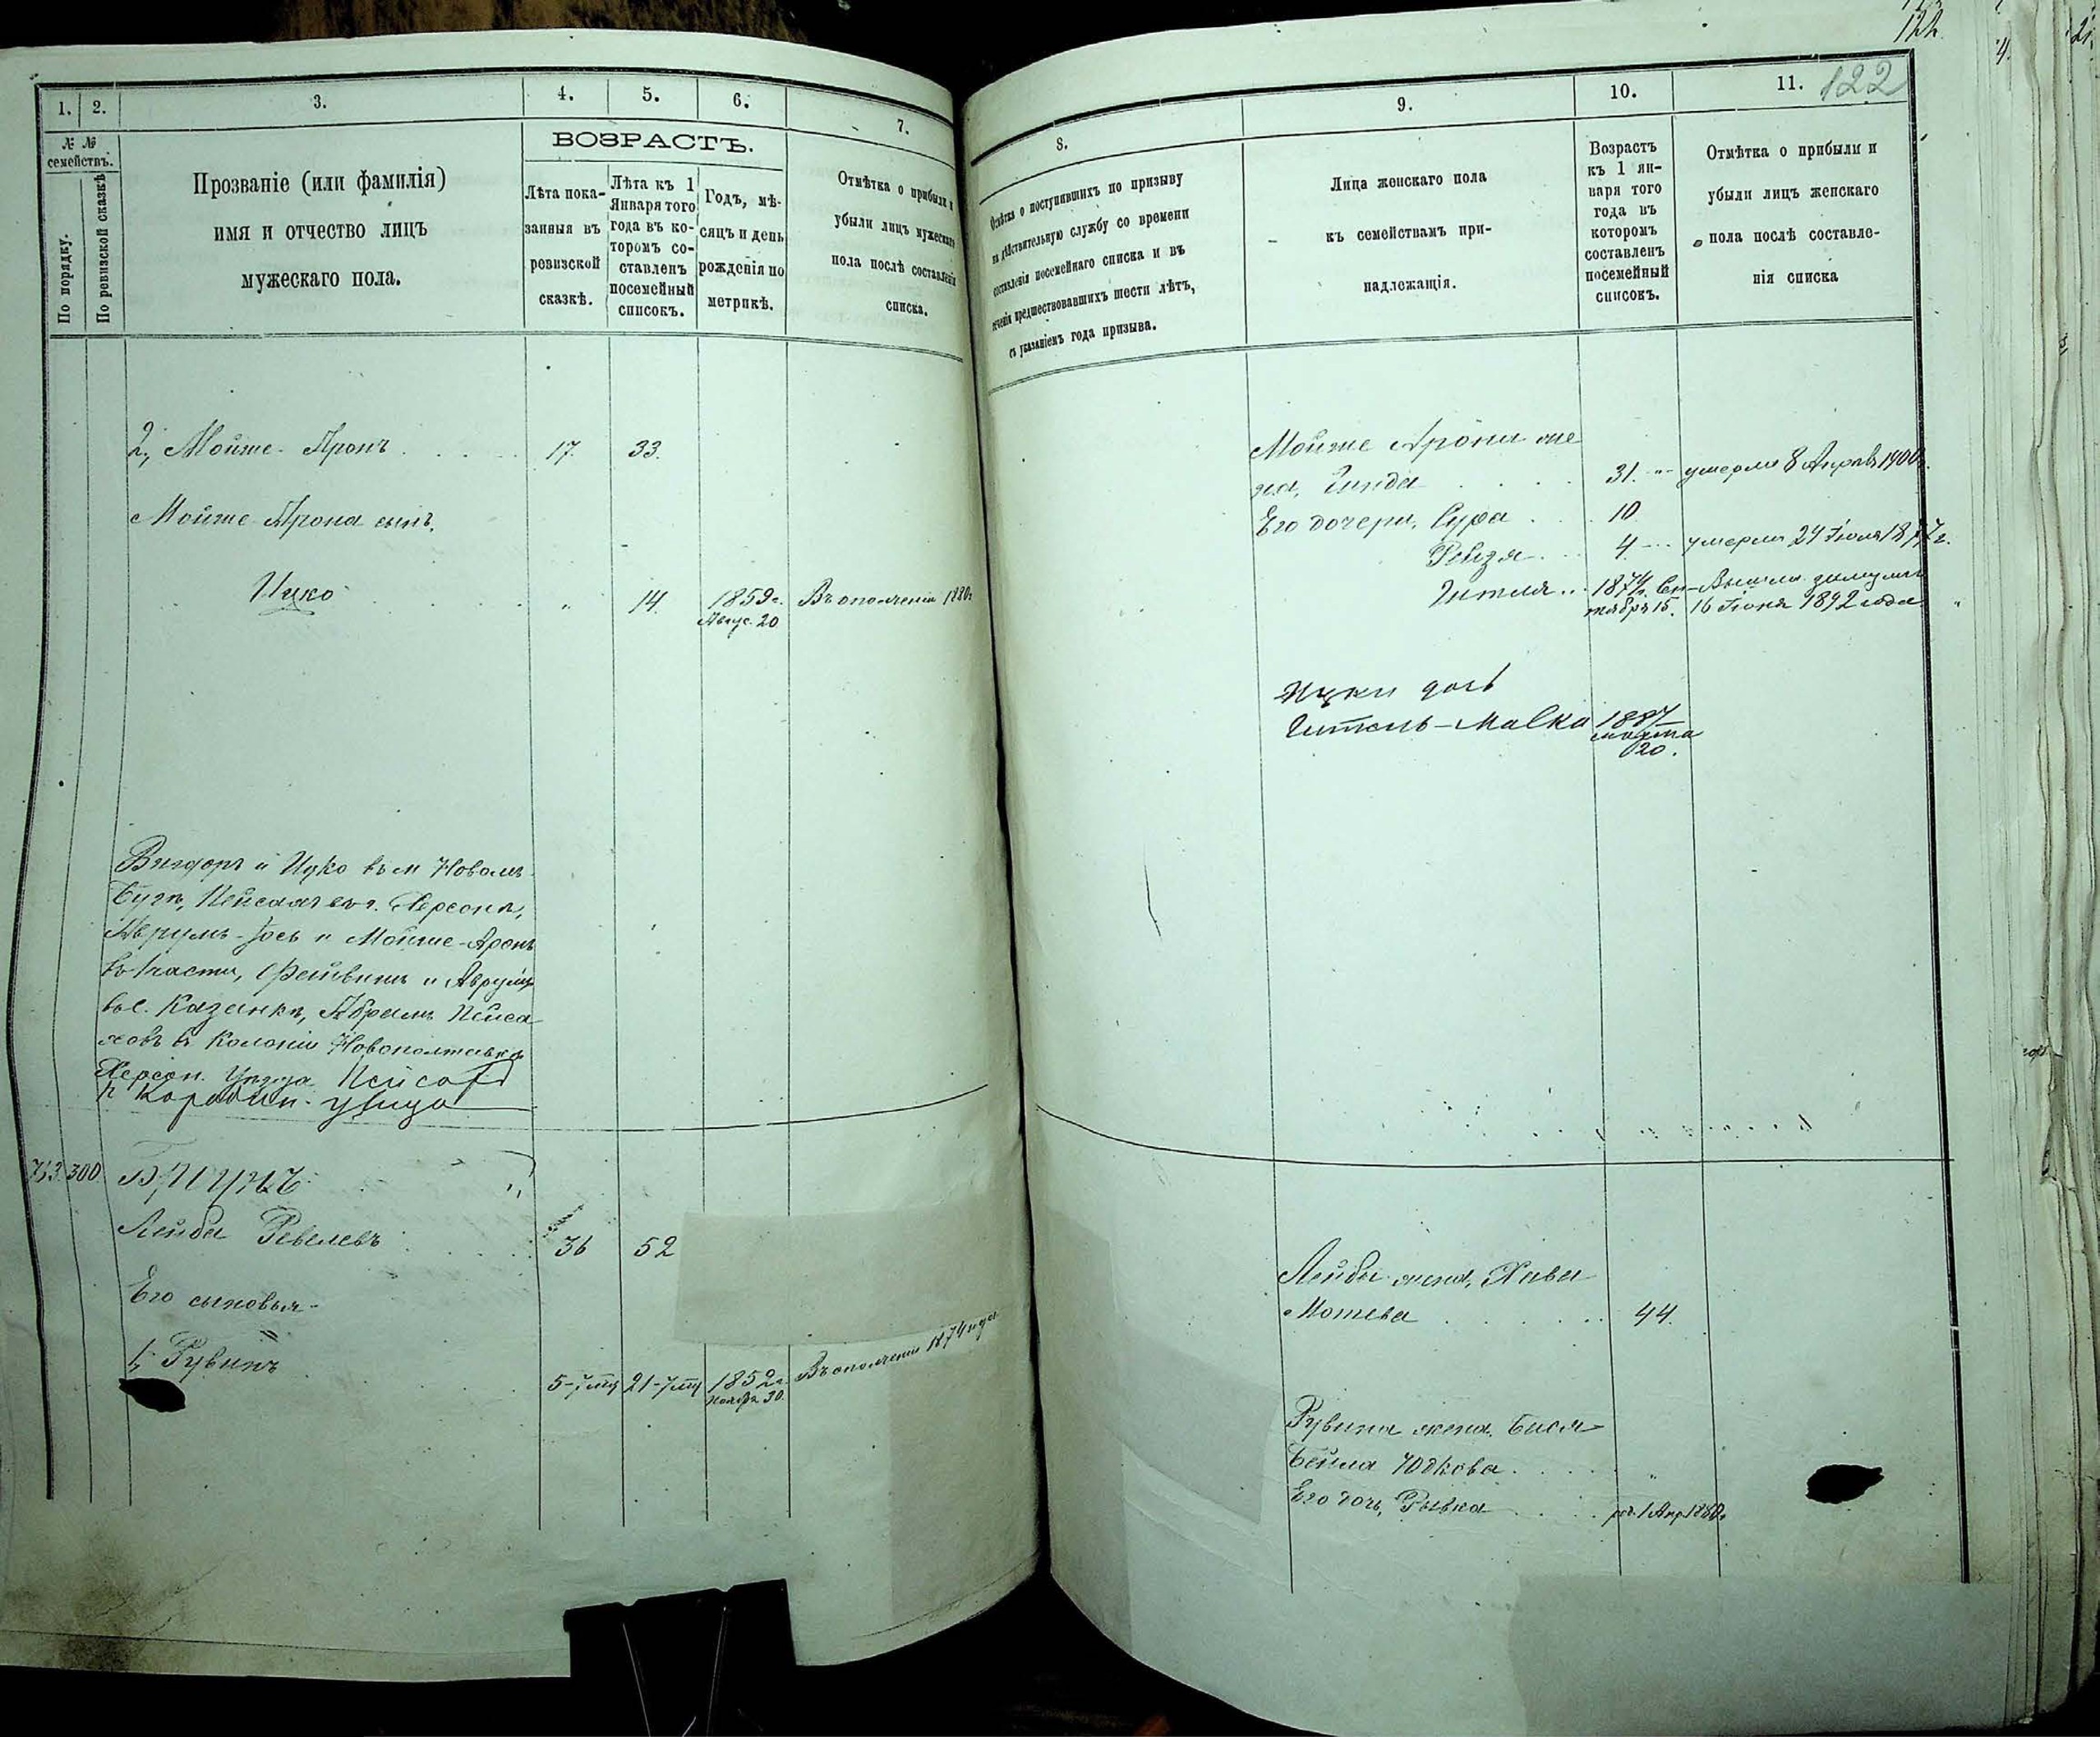 1. 2. 3. 4. 5. 6. 7.
№ №
семействъ.
По порядку.
По ревизской сказкѣ
Прозваніе (или фамилія)
имя и отчество лицъ
мужескаго пола.
ВОЗРАСТЪ.
Лѣта пока-
занныя въ
ревизской
сказкѣ.
Лѣта къ 1
Января того
года въ ко-
торомъ со-
ставленъ
посемейный
списокъ.
Годъ, мѣ-
сяцъ и день
рожденія по
метрикѣ.
Отмѣтка о прибыли и
убыли лицъ мужескаго
пола послѣ составленія
списка.
2, Мойше-Аронъ 17. 33.
Мойше-Арона сынъ.
Ицко " 14. 1859 г. Въ ополченіи 1880 г.
Авгус. 20
Вигдоръ и Ицко въ м Новомъ
Бугѣ, Пейсахъ въ г. Херсонѣ,
Аврумъ-Іось и Мойше-Аронъ
въ 1 части, Фейвишъ и Аврумъ
въ с. Казанкѣ, Абрамъ Пейса
ховъ въ Колоніи Новополтавкѣ
Херсон. Уѣзда Пейсахъ
763. 300
Лейба Ревелевъ 36 52
Его сыновья
1, Рувинъ 5-7 мц 21-7 мц 1852 г. Въ ополченіи 1874 года
Ноября 30.
122
8. 9. 10. 11. 122
Отмѣтка о поступившихъ по призыву
на дѣйствительную службу со времени
составленія посемейнаго списка и въ
теченіи предшествовавшихъ шести лѣтъ,
съ указаніемъ года призыва.
Лица женскаго пола
къ семействамъ при-
надлежащія.
Возрастъ
къ 1 ян-
варя того
года въ
которомъ
составленъ
посемейный
списокъ.
Отмѣтка о прибыли и
убыли лицъ женскаго
пола послѣ составле-
нія списка
Мойше Арона же
на, Гинда 31. умерла 8 Апрѣля 1900 г.
Его дочери, Сура 10
4 умерла 24 Іюля 1877 г.
Гитля 1874 г. Сен- Вышла замужъ
тября 15. 16 Іюня 1892 года
Ицки дочь
Гитель-Малка 1887
марта
20.
Лейбы жена, Хава
Мотева 44.
Рувина жена Бася
Бейла Юдкова "
Его дочь, Рывка р. 1 Апр. 1880 г.